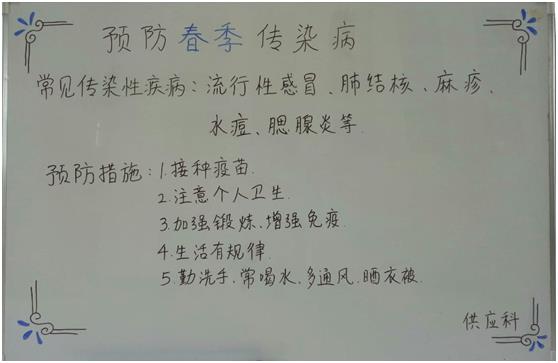 预防春季传染病
常见传染性疾病：流行性感冒、肺结核、麻疹、
水痘、腮腺炎等.
预防措施：1.接种疫苗.
2.注意个人卫生.
3.加强锻炼、增强免疫.
4.生活有规律.
5.勤洗手、常喝水、多通风、晒衣被.
供应科